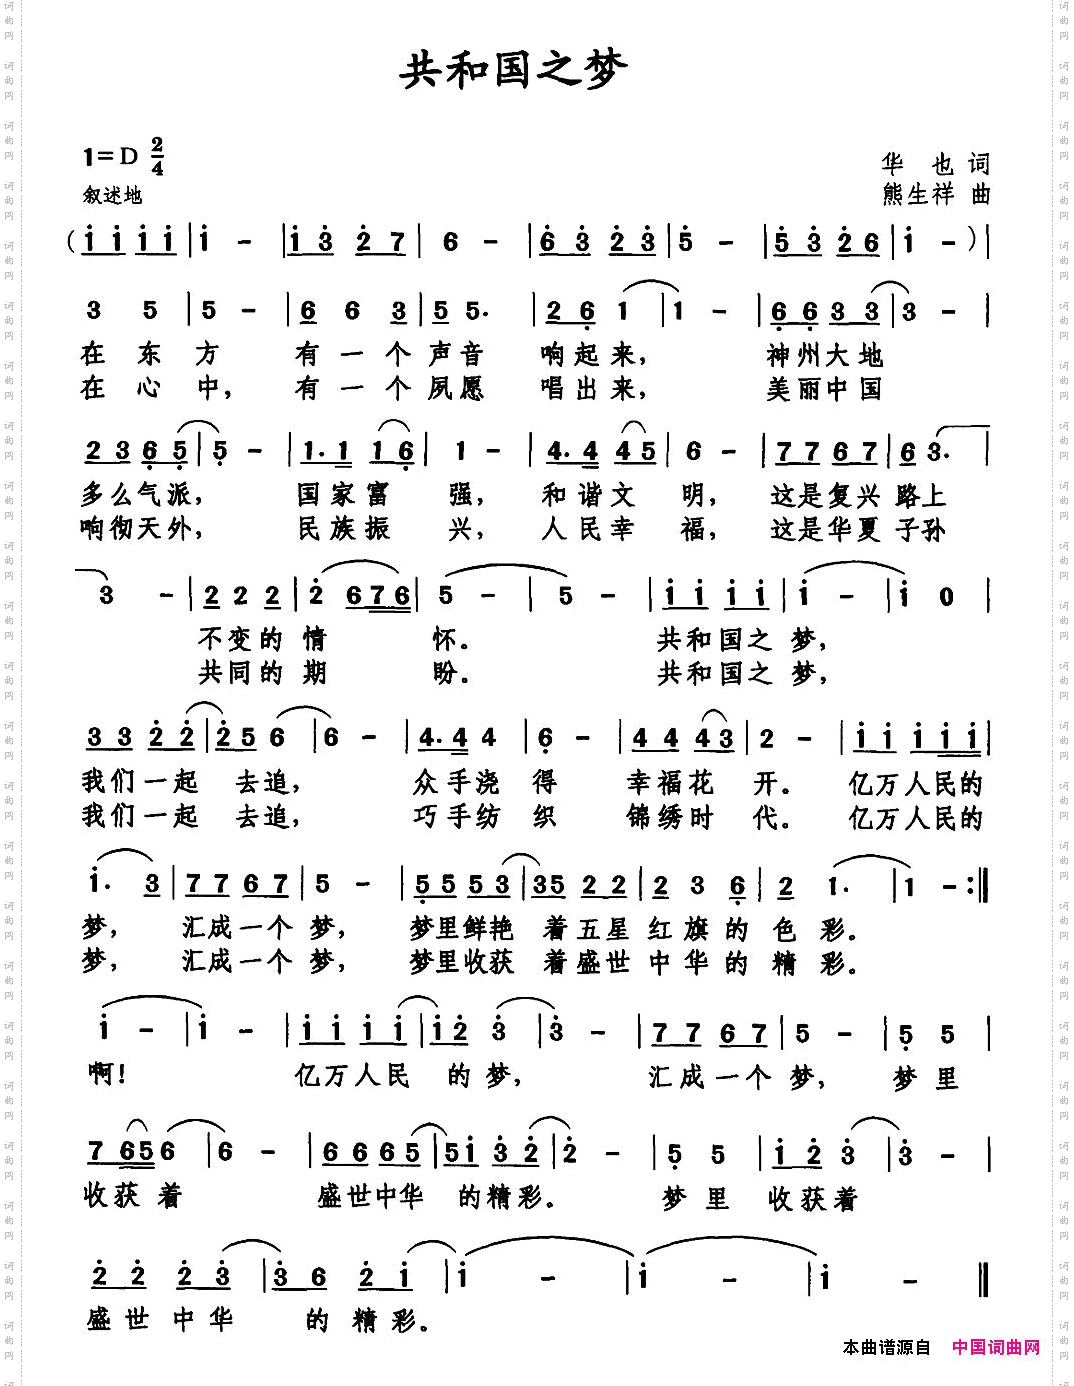 共和国之梦
1=D 2/4
华 也 词
叙述地
熊生祥 曲
(i i i i | i - | i 3 2 7 | 6 - | 6 3 2 3 | 5 - | 5 3 2 6 | i - ) |
3 5 | 5 - | 6 6 3 | 5 5. | 2 6 1 | 1 - | 6 6 3 3 | 3 - |
在 东 方 有 一 个 声 音 响 起 来, 神 州 大 地
在 心 中, 有 一 个 夙 愿 唱 出 来, 美 丽 中 国
2 3 6 5 | 5 - | 1. 1 1 6 | 1 - | 4. 4 4 5 | 6 - | 7 7 6 7 | 6 3. |
多 么 气 派, 国 家 富 强, 和 谐 文 明, 这 是 复 兴 路 上
响 彻 天 外, 民 族 振 兴, 人 民 幸 福, 这 是 华 夏 子 孙
3 - | 2 2 2 | 2 6 7 6 | 5 - | 5 - | i i i i | i - | i 0 |
不 变 的 情 怀。 共 和 国 之 梦,
共 同 的 期 盼。 共 和 国 之 梦,
3 3 2 2 | 2 5 6 | 6 - | 4. 4 4 | 6 - | 4 4 4 3 | 2 - | i i i i i |
我 们 一 起 去 追, 众 手 浇 得 幸 福 花 开。 亿 万 人 民 的
我 们 一 起 去 追, 巧 手 纺 织 锦 绣 时 代。 亿 万 人 民 的
i. 3 | 7 7 6 7 | 5 - | 5 5 5 3 | 3 5 2 2 | 2 3 6 | 2 1. | 1 - :|
梦, 汇 成 一 个 梦, 梦 里 鲜 艳 着 五 星 红 旗 的 色 彩。
梦, 汇 成 一 个 梦, 梦 里 收 获 着 盛 世 中 华 的 精 彩。
i - | i - | i i i i | i 2 3 | 3 - | 7 7 6 7 | 5 - | 5 5 |
啊! 亿 万 人 民 的 梦, 汇 成 一 个 梦, 梦 里
7 6 5 6 | 6 - | 6 6 6 5 | 5 i 3 2 | 2 - | 5 5 | i 2 3 | 3 - |
收 获 着 盛 世 中 华 的 精 彩。 梦 里 收 获 着
2 2 2 3 | 3 6 2 i | i - | i - | i - ‖
盛 世 中 华 的 精 彩。
本曲谱源自 中国词曲网